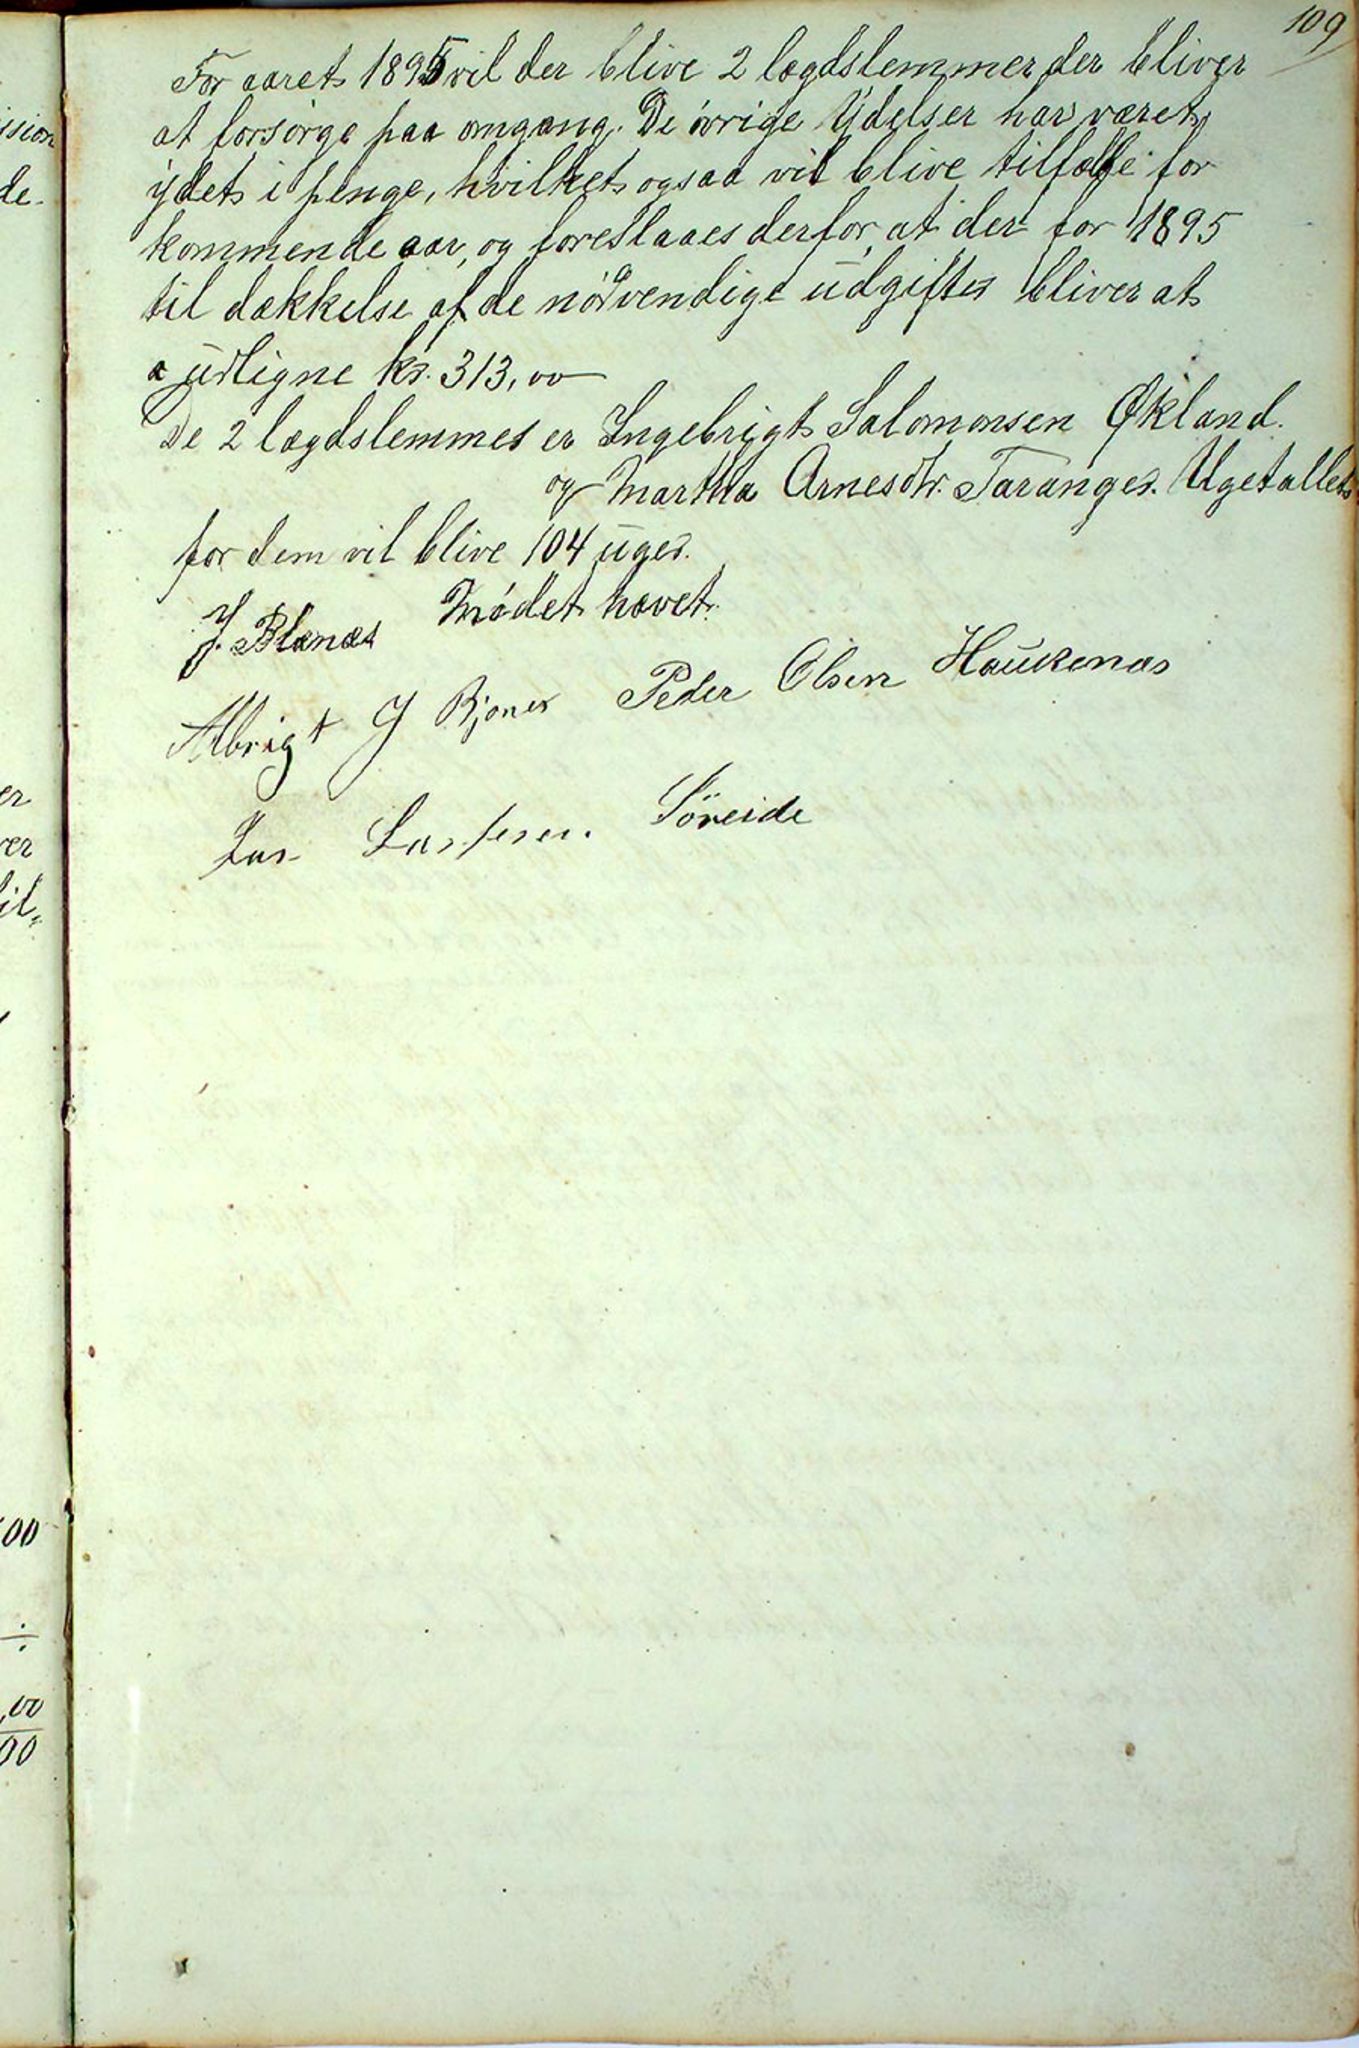 109
For aaret 1895 vil der blive 2 lægdslemmer der bliver
at forsørge paa omgang. De øvrige Ydelser har været
ydet i penge, hvilket ogsaa vil blive tilfælde for
kommende aar, og foreslaaes derfor, at der for 1895
til dækkelse af de nødvendige udgifter bliver at
udligne kr. 313,00
De 2 lægdslemmer er Ingebrigt Salomonsen Økland.
og Martha Arnesdtr. Taranger. Ugetallet
for dem vil blive 104 uger.
Mødet hævet.
J. Blænæs
Albrigt J Bjones Peder Olsen Haukenæs
Lars Larsen. Söreide